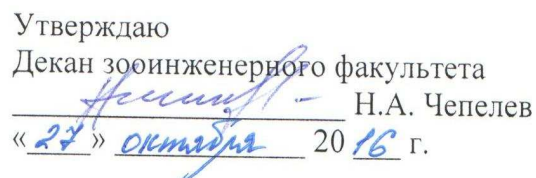 Утверждаю
Декан зооинженерного факультета
Н.А. Чепелев
«27» октября 2016 г.